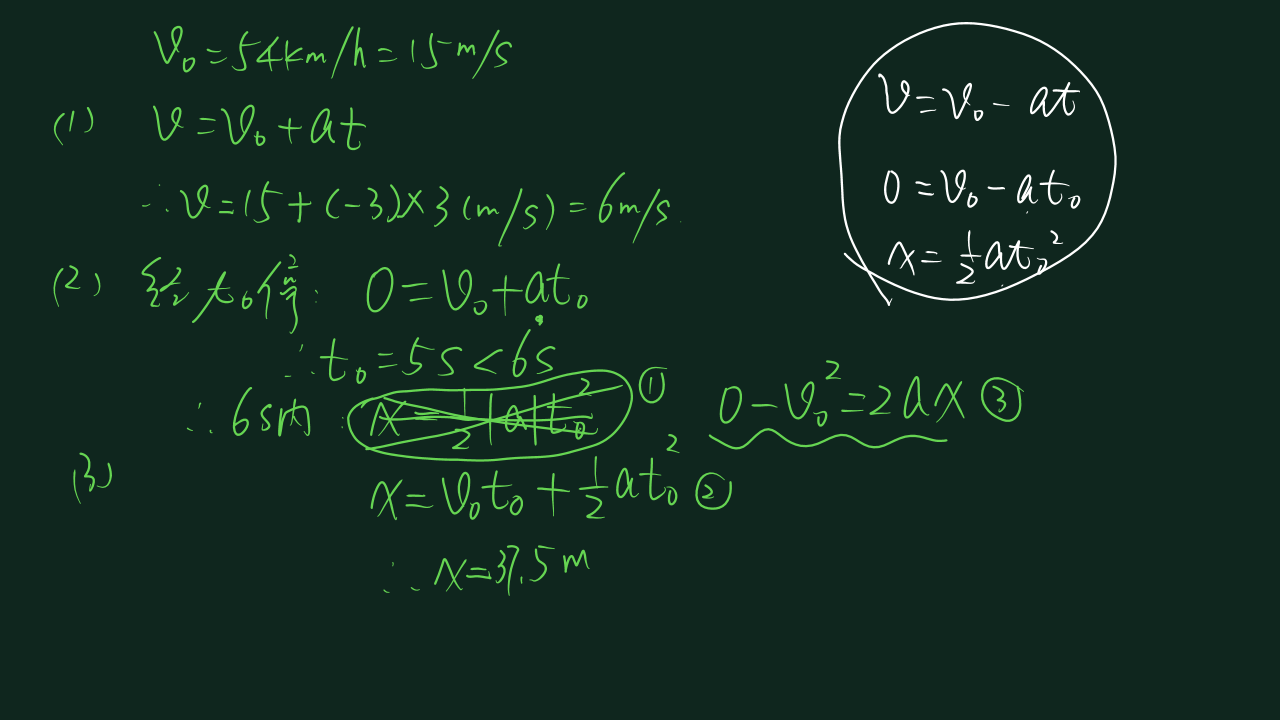 v₀=54km/h=15m/s
(1) v=v₀+at
∴v=15+(-3)×3(m/s)=6m/s.
(2) 经t₀停: 0=v₀+at₀
∴t₀=5s<6s
∴6s内: x=½|a|t₀² ① 0-v₀²=2ax ③
(3)
x=v₀t₀+½at₀² ②
∴x=37.5m
v=v₀-at
0=v₀-at₀
x=½at₀²